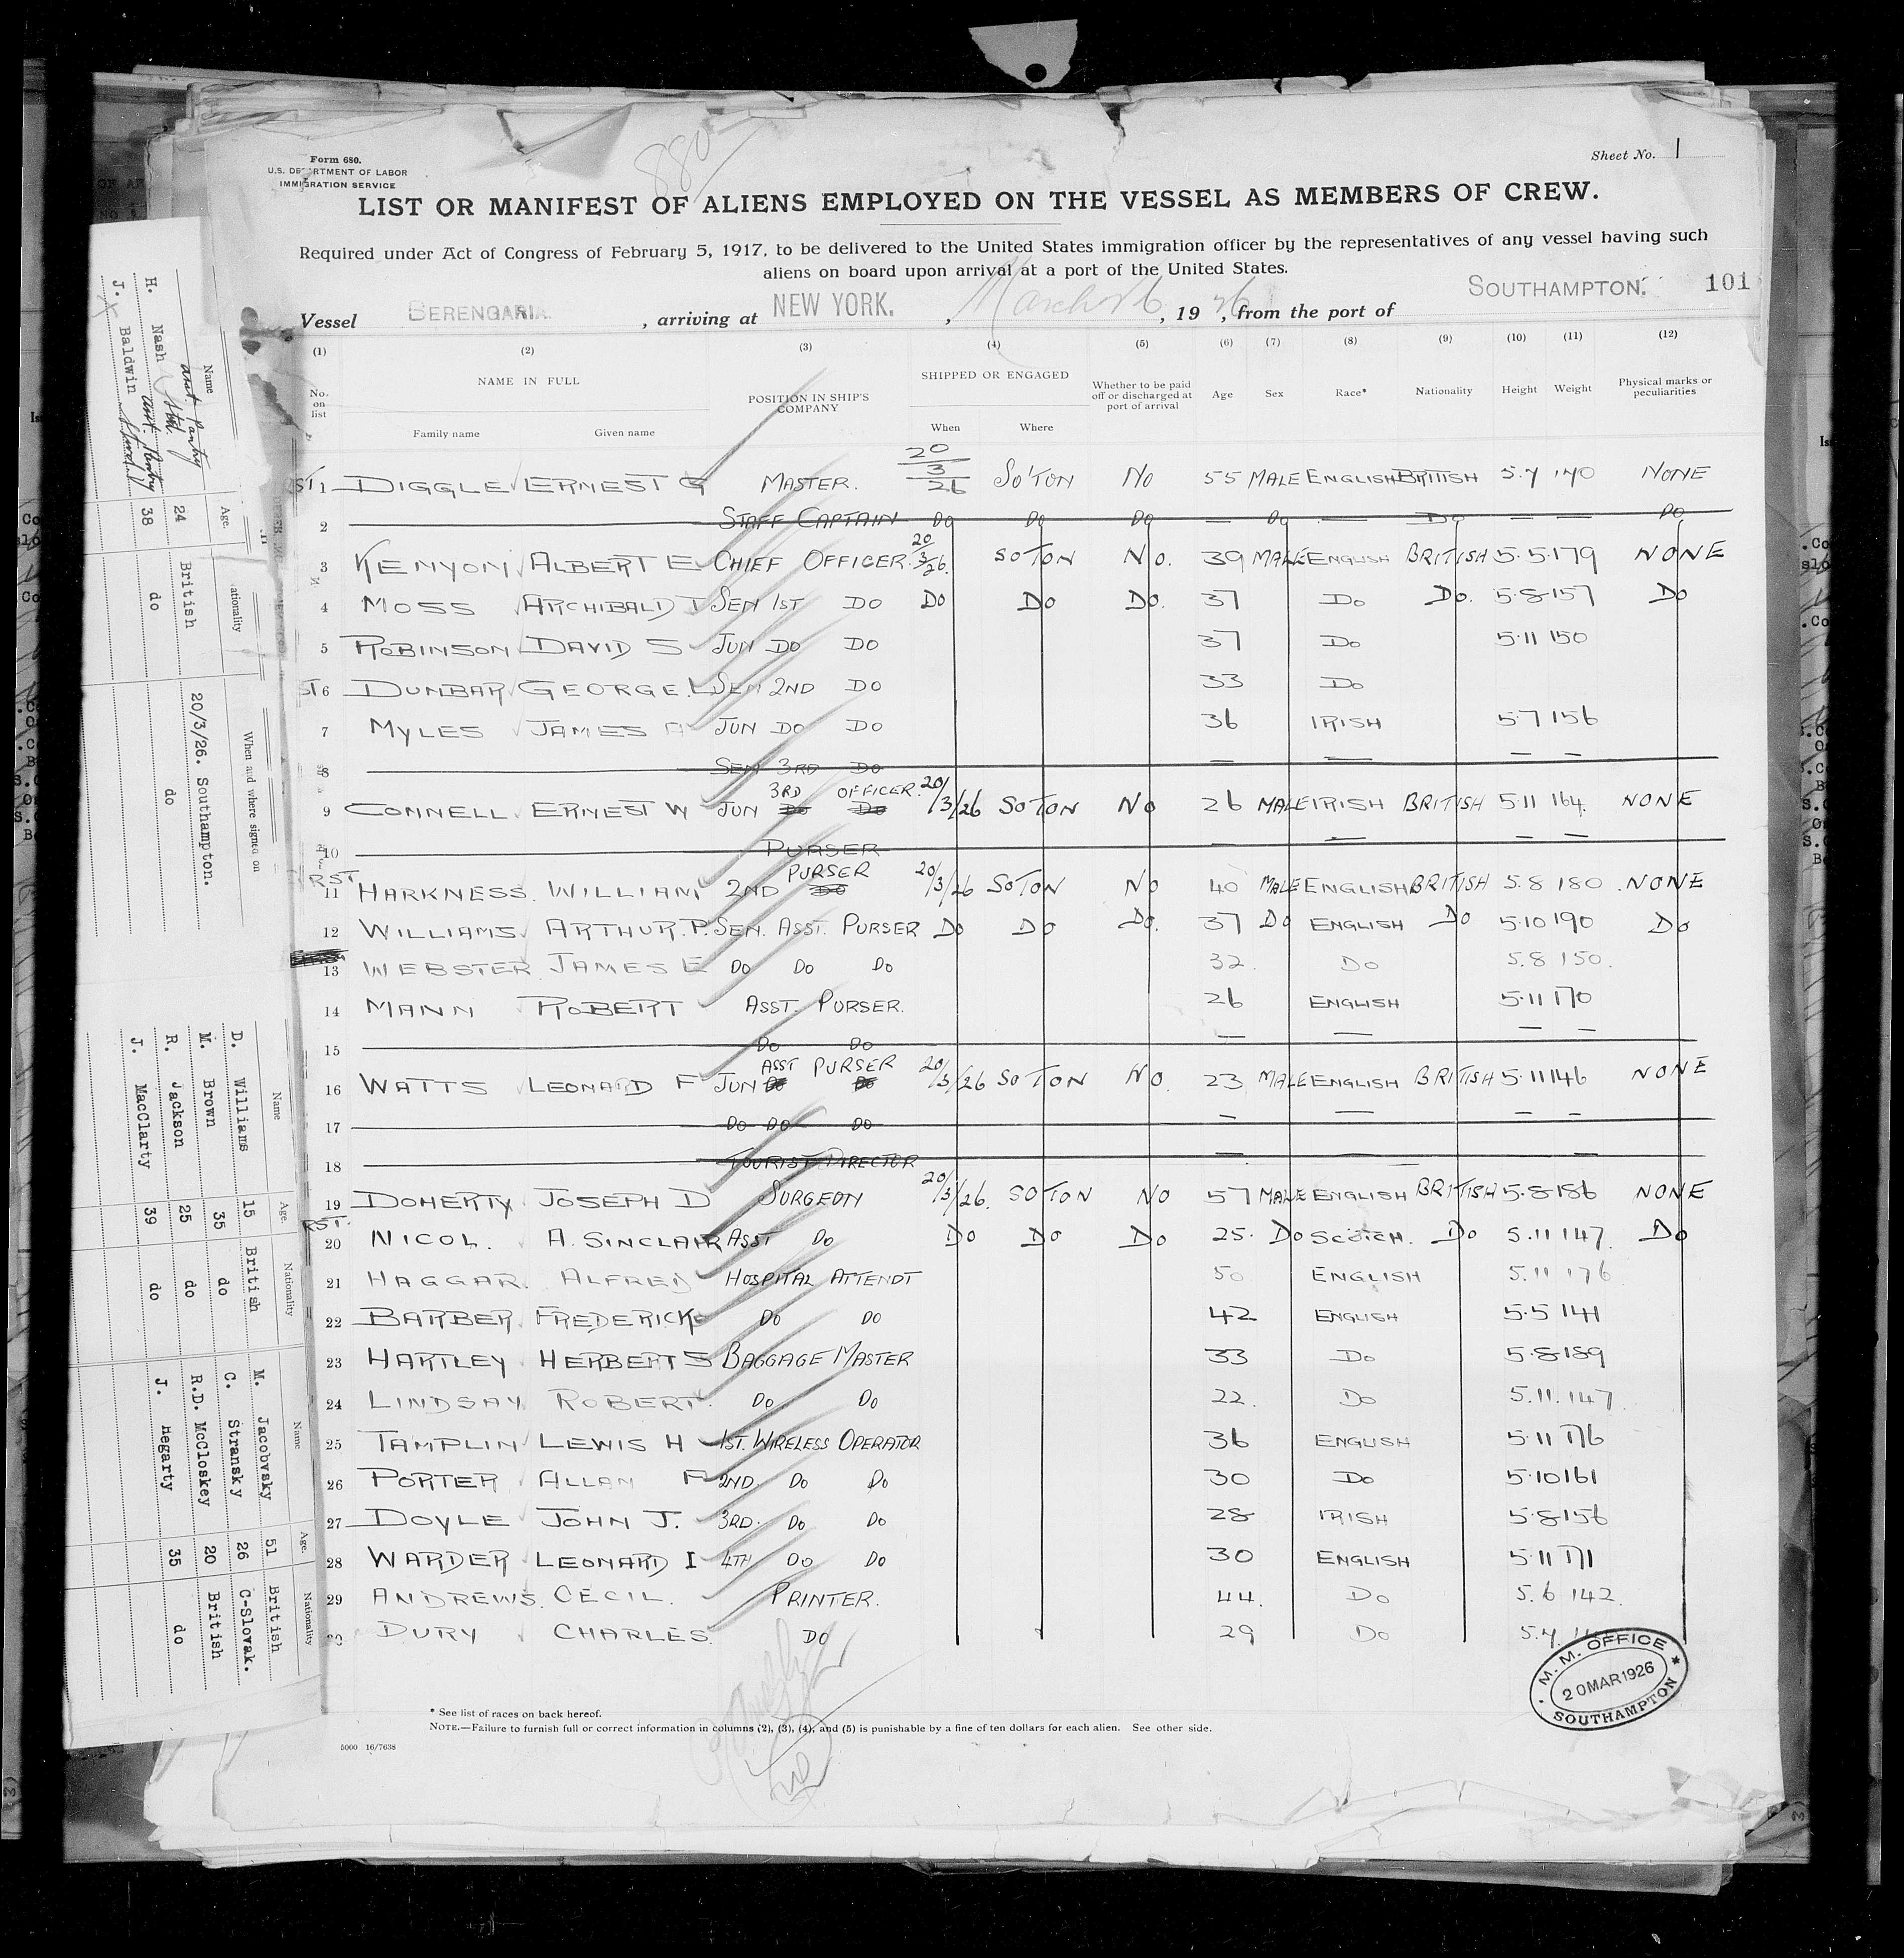 Form 680.
U.S. DEPARTMENT OF LABOR
IMMIGRATION SERVICE
880
Sheet No. 1
LIST OR MANIFEST OF ALIENS EMPLOYED ON THE VESSEL AS MEMBERS OF CREW.
Required under Act of Congress of February 5, 1917, to be delivered to the United States immigration officer by the representatives of any vessel having such
aliens on board upon arrival at a port of the United States.
Vessel BERENGARIA. , arriving at NEW YORK. , March 26, 1926, from the port of SOUTHAMPTON. 101
(1) (2) (3) (4) (5) (6) (7) (8) (9) (10) (11) (12)
No. on list NAME IN FULL Family name Given name POSITION IN SHIP'S COMPANY SHIPPED OR ENGAGED When Where Whether to be paid off or discharged at port of arrival Age Sex Race* Nationality Height Weight Physical marks or peculiarities
ST 1 DIGGLE ERNEST G MASTER. 20/3/26 SO'TON NO 55 MALE ENGLISH BRITISH 5.7 170 NONE
2 STAFF CAPTAIN DO DO DO — DO — DO — — DO
3 KENYON ALBERT E CHIEF OFFICER. 20/3/26. SOTON NO. 39 MALE ENGLISH BRITISH 5.5 179 NONE
4 MOSS ARCHIBALD T SEN 1ST DO DO DO DO. 37 DO DO. 5.8 157 DO
5 ROBINSON DAVID S JUN DO DO 37 DO 5.11 150
ST 6 DUNBAR GEORGE. L SEN 2ND DO 33 DO
7 MYLES JAMES A JUN DO DO 36 IRISH 5.7 156
8 SEN 3RD DO — — — —
9 CONNELL ERNEST W JUN 3RD OFFICER. 20/3/26 SOTON NO 26 MALE IRISH BRITISH 5.11 164. NONE
10 PURSER — — — —
RST 11 HARKNESS. WILLIAM 2ND PURSER 20/3/26 SOTON NO 40 MALE ENGLISH BRITISH 5.8 180 NONE
12 WILLIAMS ARTHUR. P. SEN. ASST. PURSER DO DO DO. 37 DO ENGLISH DO 5.10 190 DO
13 WEBSTER JAMES E DO DO DO 32. DO 5.8 150.
14 MANN ROBERT ASST. PURSER. 26 ENGLISH 5.11 170
15 DO DO — — — —
16 WATTS LEONARD F JUN ASST PURSER 20/3/26 SOTON NO. 23 MALE ENGLISH BRITISH 5.11 146 NONE
17 DO DO DO — — — —
18 TOURIST DIRECTOR — — — —
19 DOHERTY JOSEPH D SURGEON 20/3/26. SOTON NO 57 MALE ENGLISH BRITISH 5.8 186 NONE
RST. 20 NICOL. A. SINCLAIR ASST DO DO DO DO 25. DO SCOTCH. DO 5.11 147. DO
21 HAGGAR. ALFRED HOSPITAL ATTENDT 50 ENGLISH 5.11 176
22 BARBER FREDERICK DO DO 42 ENGLISH 5.5 141
23 HARTLEY HERBERT S BAGGAGE MASTER 33 DO 5.8 189
24 LINDSAY ROBERT. DO DO 22. DO 5.11. 147.
25 TAMPLIN LEWIS H 1ST. WIRELESS OPERATOR 36 ENGLISH 5.11 176
26 PORTER ALLAN F 2ND. DO DO 30 DO 5.10 161
27 DOYLE JOHN J. 3RD. DO DO 28 IRISH 5.8 156
28 WARDER LEONARD I 4TH DO DO 30 ENGLISH 5.11 171
29 ANDREWS. CECIL. PRINTER. 44. DO 5.6 142.
30 DURY CHARLES. DO 29 DO 5.7.
* See list of races on back hereof.
NOTE.—Failure to furnish full or correct information in columns (2), (3), (4), and (5) is punishable by a fine of ten dollars for each alien. See other side.
5000 16/7638
M. M. OFFICE
20 MAR 1926
SOUTHAMPTON
Name Age. Nationality When and where signed on
H. Nash asst. Pantry Std. 24 British 20/3/26. Southampton.
J. Baldwin asst. Pantry Stwd. 38 do do
Name Age. Nationality
D. Williams 15 British
M. Brown 35 do
R. Jackson 25 do
J. MacClarty 39 do
Name Age. Nationality
M. Jacobvsky 51 British
C. Stransky 26 C-Slovak.
R.D. McCloskey 20 British
J. Hegarty 35 do